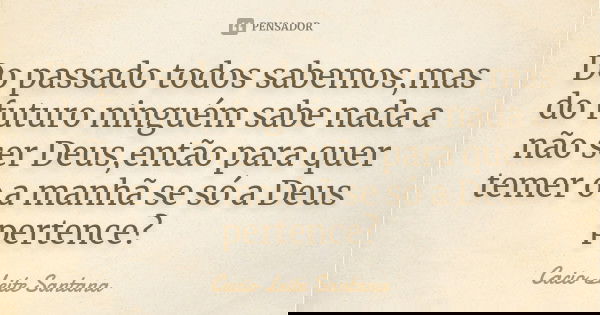 PENSADOR
Do passado todos sabemos,mas
do futuro ninguém sabe nada a
não ser Deus,então para quer
temer o a manhã se só a Deus
pertence?
Cacio Leite Santana